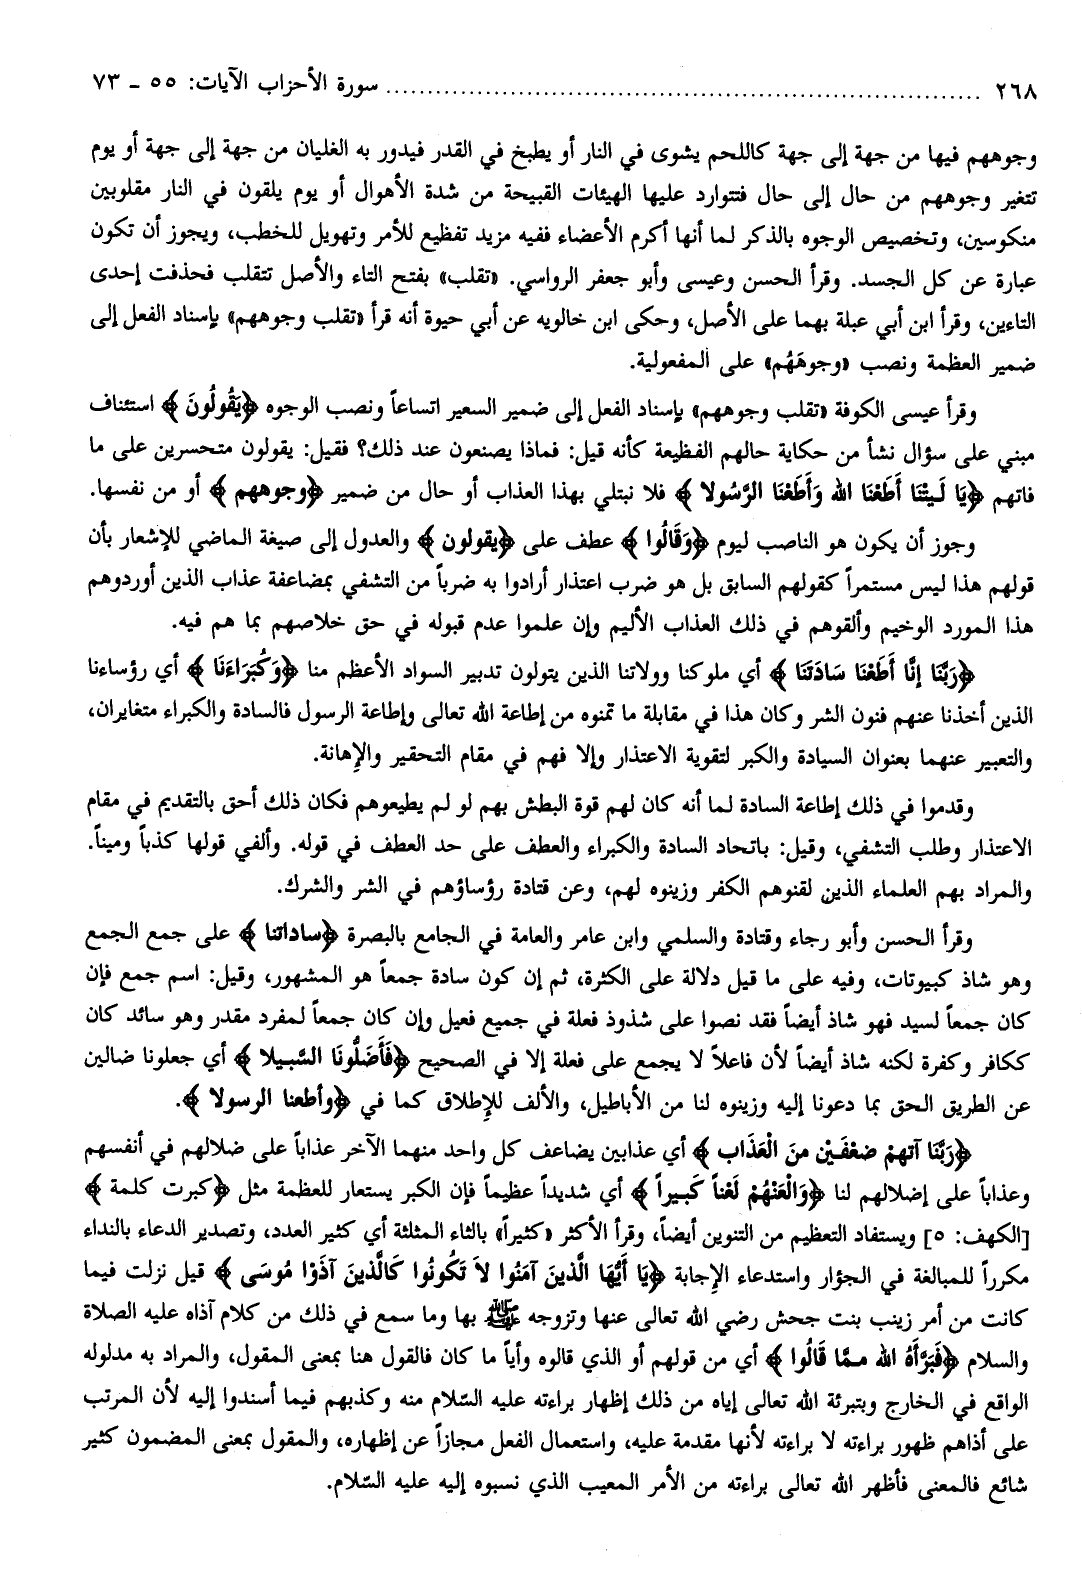 ٢٦٨ ................................................................ سورة الأحزاب الآيات: ٥٥ ـ ٧٣
وجوههم فيها من جهة إلى جهة كاللحم يشوى في النار أو يطبخ في القدر فيدور به الغليان من جهة إلى جهة أو يوم
تتغير وجوههم من حال إلى حال فتتوارد عليها الهيئات القبيحة من شدة الأهوال أو يوم يلقون في النار مقلوبين
منكوسين، وتخصيص الوجوه بالذكر لما أنها أكرم الأعضاء ففيه مزيد تفظيع للأمر وتهويل للخطب، ويجوز أن تكون
عبارة عن كل الجسد. وقرأ الحسن وعيسى وأبو جعفر الرواسي. «تقلب» بفتح التاء والأصل تتقلب فحذفت إحدى
التاءين، وقرأ ابن أبي عبلة بهما على الأصل، وحكى ابن خالويه عن أبي حيوة أنه قرأ «تقلب وجوههم» بإسناد الفعل إلى
ضمير العظمة ونصب «وجوهَهُم» على المفعولية.
وقرأ عيسى الكوفة «تقلب وجوههم» بإسناد الفعل إلى ضمير السعير اتساعاً ونصب الوجوه ﴿يَقُولُونَ﴾ استئناف
مبني على سؤال نشأ من حكاية حالهم الفظيعة كأنه قيل: فماذا يصنعون عند ذلك؟ فقيل: يقولون متحسرين على ما
فاتهم ﴿يَا لَيتْنَا أَطَعْنَا الله وَأَطَعْنَا الرَّسُولا﴾ فلا نبتلي بهذا العذاب أو حال من ضمير ﴿وجوههم﴾ أو من نفسها.
وجوز أن يكون هو الناصب ليوم ﴿وَقَالُوا﴾ عطف على ﴿يقولون﴾ والعدول إلى صيغة الماضي للإشعار بأن
قولهم هذا ليس مستمراً كقولهم السابق بل هو ضرب اعتذار أرادوا به ضرباً من التشفي بمضاعفة عذاب الذين أوردوهم
هذا المورد الوخيم وألقوهم في ذلك العذاب الأليم وإن علموا عدم قبوله في حق خلاصهم بما هم فيه.
﴿رَبَّنَا إنَّا أَطَعْنَا سَادَتَنَا﴾ أي ملوكنا وولاتنا الذين يتولون تدبير السواد الأعظم منا ﴿وَكُبَرَاءَنَا﴾ أي رؤساءنا
الذين أخذنا عنهم فنون الشر وكان هذا في مقابلة ما تمنوه من إطاعة الله تعالى وإطاعة الرسول فالسادة والكبراء متغايران،
والتعبير عنهما بعنوان السيادة والكبر لتقوية الاعتذار وإلا فهم في مقام التحقير والإهانة.
وقدموا في ذلك إطاعة السادة لما أنه كان لهم قوة البطش بهم لو لم يطيعوهم فكان ذلك أحق بالتقديم في مقام
الاعتذار وطلب التشفي، وقيل: باتحاد السادة والكبراء والعطف على حد العطف في قوله. وألفي قولها كذباً وميناً.
والمراد بهم العلماء الذين لقنوهم الكفر وزينوه لهم، وعن قتادة رؤساؤهم في الشر والشرك.
وقرأ الحسن وأبو رجاء وقتادة والسلمي وابن عامر والعامة في الجامع بالبصرة ﴿ساداتنا﴾ على جمع الجمع
وهو شاذ كبيوتات، وفيه على ما قيل دلالة على الكثرة، ثم إن كون سادة جمعاً هو المشهور، وقيل: اسم جمع فإن
كان جمعاً لسيد فهو شاذ أيضاً فقد نصوا على شذوذ فعلة في جميع فعيل وإن كان جمعاً لمفرد مقدر وهو سائد كان
ككافر وكفرة لكنه شاذ أيضاً لأن فاعلاً لا يجمع على فعلة إلا في الصحيح ﴿فَأَضَلُّونَا السَّبيلا﴾ أي جعلونا ضالين
عن الطريق الحق بما دعونا إليه وزينوه لنا من الأباطيل، والألف للإطلاق كما في ﴿وأطعنا الرسولا﴾.
﴿رَبَّنَا آتهمْ ضعْفَيْن منَ الْعَذَاب﴾ أي عذابين يضاعف كل واحد منهما الآخر عذاباً على ضلالهم في أنفسهم
وعذاباً على إضلالهم لنا ﴿وَالْعَنْهُمْ لَعْناً كَبيراً﴾ أي شديداً عظيماً فإن الكبر يستعار للعظمة مثل ﴿كبرت كلمة﴾
[الكهف: ٥] ويستفاد التعظيم من التنوين أيضاً، وقرأ الأكثر «كثيراً» بالثاء المثلثة أي كثير العدد، وتصدير الدعاء بالنداء
مكرراً للمبالغة في الجؤار واستدعاء الإجابة ﴿يَا أَيُّهَا الَّذينَ آمَنُوا لاَ تَكُونُوا كَالَّذينَ آذَوْا مُوسَى﴾ قيل نزلت فيما
كانت من أمر زينب بنت جحش رضي الله تعالى عنها وتزوجه ﷺ بها وما سمع في ذلك من كلام آذاه عليه الصلاة
والسلام ﴿فَبَرَّأَهُ الله ممَّا قَالُوا﴾ أي من قولهم أو الذي قالوه وأياً ما كان فالقول هنا بمعنى المقول، والمراد به مدلوله
الواقع في الخارج وبتبرئة الله تعالى إياه من ذلك إظهار براءته عليه السّلام منه وكذبهم فيما أسندوا إليه لأن المرتب
على أذاهم ظهور براءته لا براءته لأنها مقدمة عليه، واستعمال الفعل مجازاً عن إظهاره، والمقول بمعنى المضمون كثير
شائع فالمعنى فأظهر الله تعالى براءته من الأمر المعيب الذي نسبوه إليه عليه السّلام.